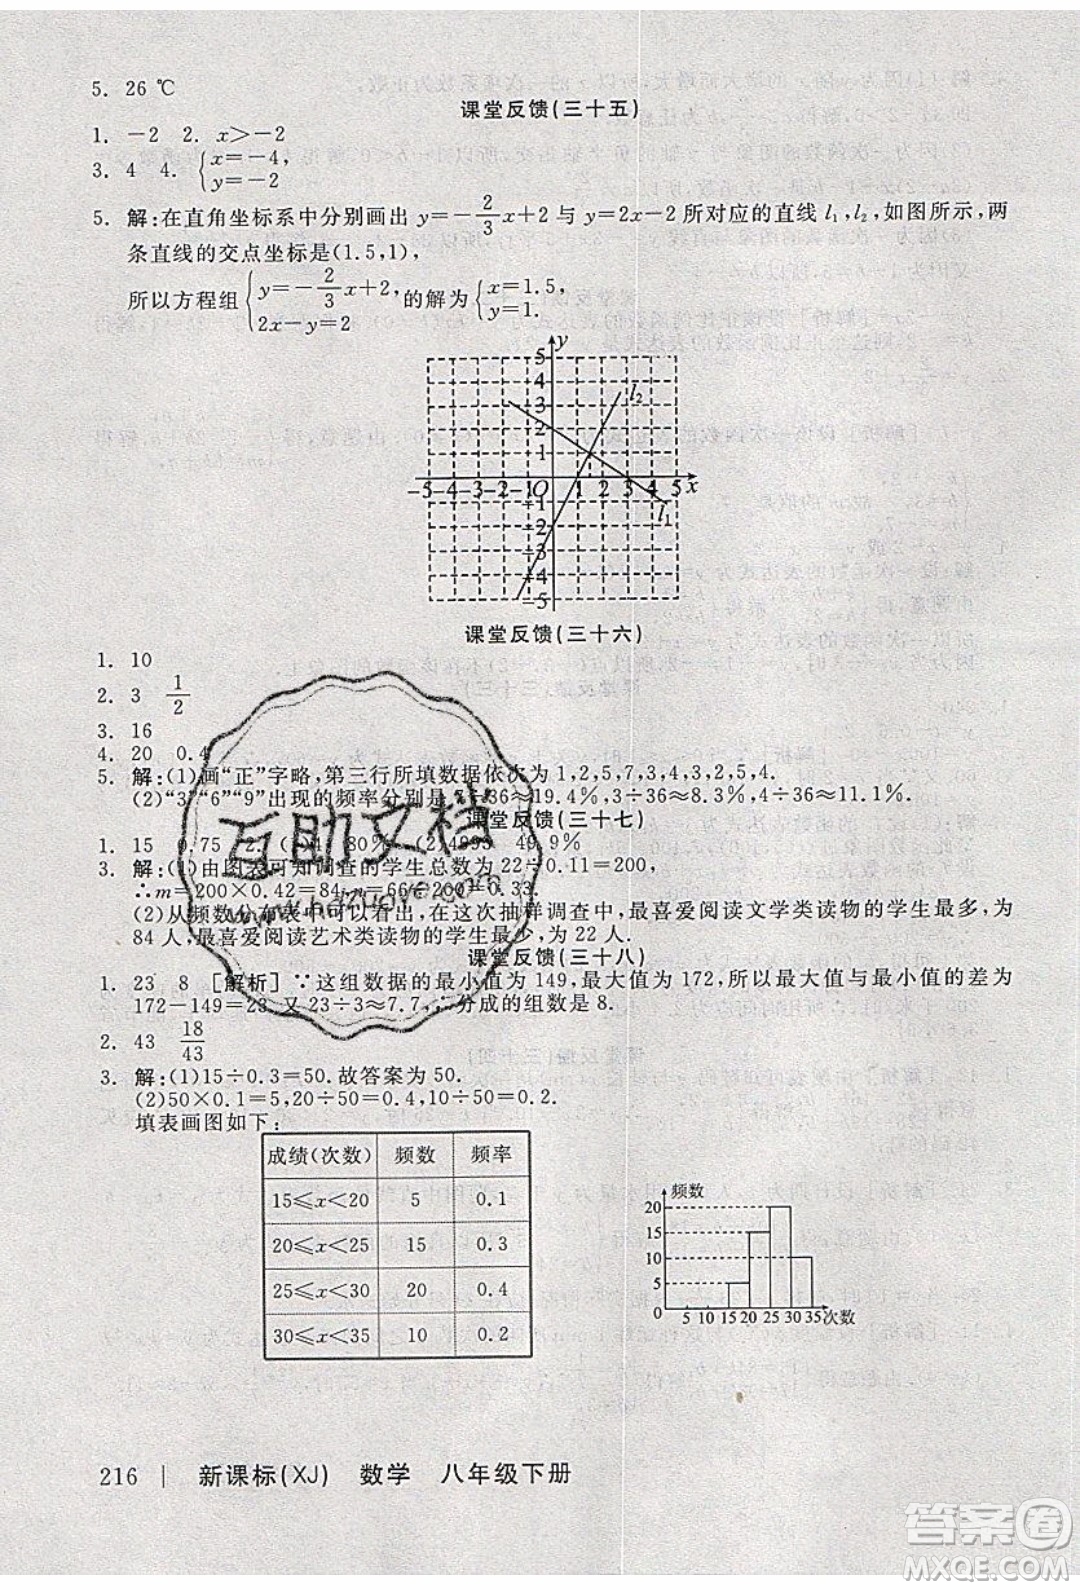 5. 26 ℃
课堂反馈(三十五)
1. －2　2. x>－2
3. 4　4. {x=－4, y=－2
5. 解:在直角坐标系中分别画出 y=－2/3x+2 与 y=2x－2 所对应的直线 l₁,l₂,如图所示,两
条直线的交点坐标是(1.5,1),
所以方程组{y=－2/3x+2, 2x－y=2 的解为{x=1.5, y=1.
y
5
4
3
2
1
-5 -4 -3 -2 -1 O 1 2 3 4 5 x
-1
-2
-3
-4
-5
l₂
l₁
课堂反馈(三十六)
1. 10
2. 3　1/2
3. 16
4. 20　0.4
5. 解:(1)画“正”字略,第三行所填数据依次为 1,2,5,7,3,4,3,5,2,4.
(2)“3”“6”“9”出现的频率分别是 7÷36≈19.4%,3÷36≈8.3%,4÷36≈11.1%.
课堂反馈(三十七)
1. 15　0.75　2. (1)4　80%　(2)4995　49.9%
3. 解:(1)由图表可知调查的学生总数为 22÷0.11=200,
∴m=200×0.42=84,n=66÷200=0.33.
(2)从频数分布表中可以看出,在这次抽样调查中,最喜爱阅读文学类读物的学生最多,为
84 人,最喜爱阅读艺术类读物的学生最少,为 22 人.
课堂反馈(三十八)
1. 23　8　[解析] ∵这组数据的最小值为 149,最大值为 172,所以最大值与最小值的差为
172－149=23.又 23÷3≈7.7,∴分成的组数是 8.
2. 43　18/43
3. 解:(1)15÷0.3=50.故答案为 50.
(2)50×0.1=5,20÷50=0.4,10÷50=0.2.
填表画图如下:
成绩(次数) 频数 频率
15≤x<20 5 0.1
20≤x<25 15 0.3
25≤x<30 20 0.4
30≤x<35 10 0.2
频数
20
15
10
5
0
5 10 15 20 25 30 35 次数
216 | 新课标(XJ)　数学　八年级下册
互助文档
答案圈
MXQE.COM